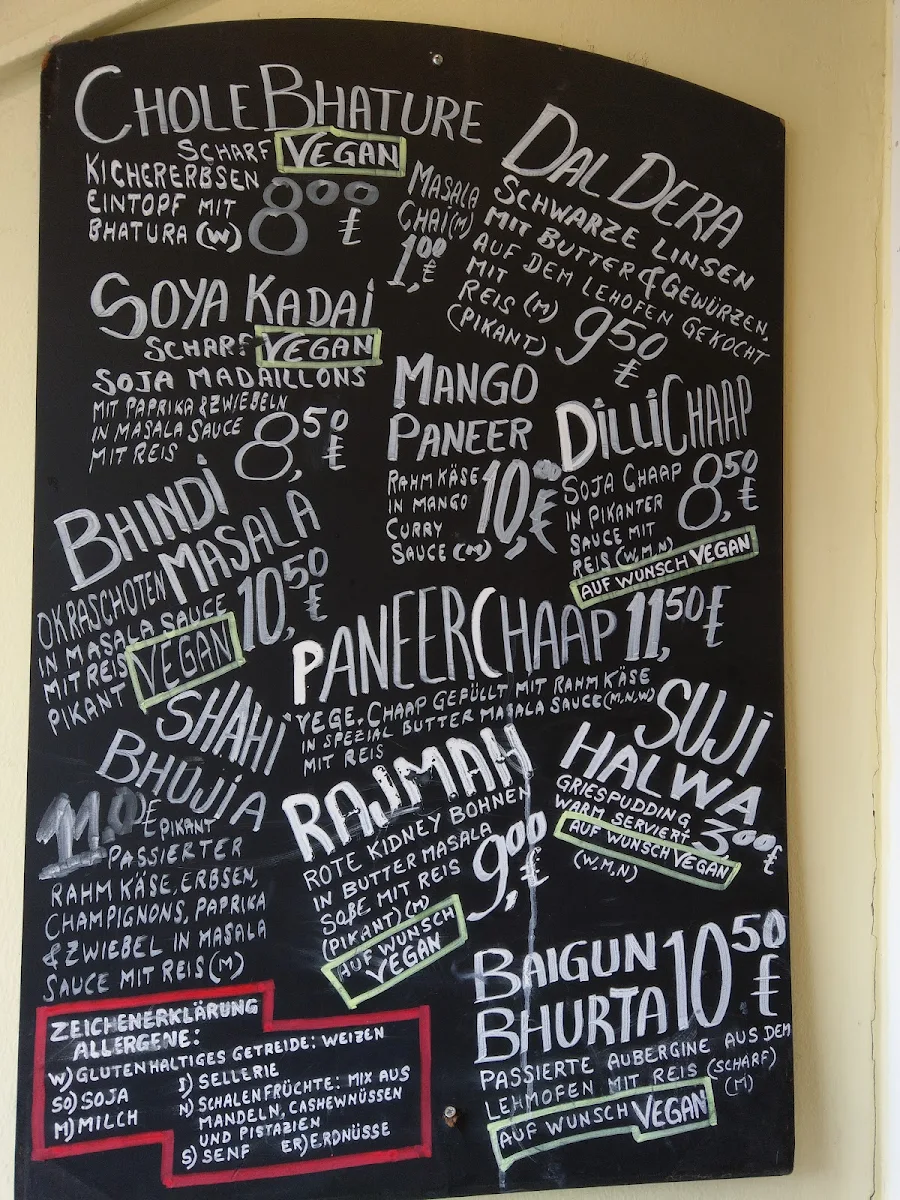 CHOLE BHATURE
SCHARF VEGAN
KICHERERBSEN
EINTOPF MIT
BHATURA (W)
8,00 €
MASALA
CHAI (M)
1,00 €
DAL DERA
SCHWARZE LINSEN
MIT BUTTER & GEWÜRZEN,
AUF DEM LEHOFEN GEKOCHT
MIT
REIS (M)
(PIKANT)
9,50 €
SOYA KADAI
SCHARF VEGAN
SOJA MADAILLONS
MIT PAPRIKA & ZWIEBELN
IN MASALA SAUCE
MIT REIS
8,50 €
MANGO
PANEER
RAHMKÄSE
IN MANGO
CURRY
SAUCE (M)
10,00 €
DILLI CHAAP
SOJA CHAAP
IN PIKANTER
SAUCE MIT
REIS (W,M,N)
8,50 €
AUF WUNSCH VEGAN
BHINDI
MASALA
OKRASCHOTEN
IN MASALA SAUCE
MIT REIS
PIKANT
VEGAN
10,50 €
PANEER CHAAP 11,50 €
VEGE. CHAAP GEFÜLLT MIT RAHMKÄSE
IN SPEZIAL BUTTER MASALA SAUCE (M,N,W)
MIT REIS
SHAHI
BHUJIA
11.0 € PIKANT
PASSIERTER
RAHMKÄSE, ERBSEN,
CHAMPIGNONS, PAPRIKA
& ZWIEBEL IN MASALA
SAUCE MIT REIS (M)
RAJMAH
ROTE KIDNEY BOHNEN
IN BUTTER MASALA
SOßE MIT REIS
(PIKANT) (M)
9,00 €
AUF WUNSCH
VEGAN
SUJI
HALWA
GRIESPUDDING
WARM SERVIERT
3,00 €
AUF WUNSCH VEGAN
(W,M,N)
BAIGUN
BHURTA
10,50 €
PASSIERTE AUBERGINE AUS DEM
LEHMOFEN MIT REIS (SCHARF)
(M)
AUF WUNSCH VEGAN
ZEICHENERKLÄRUNG
ALLERGENE:
W) GLUTENHALTIGES GETREIDE: WEIZEN
SO) SOJA
M) MILCH
I) SELLERIE
N) SCHALENFRÜCHTE: MIX AUS
MANDELN, CASHEWNÜSSEN
UND PISTAZIEN
S) SENF ER) ERDNÜSSE